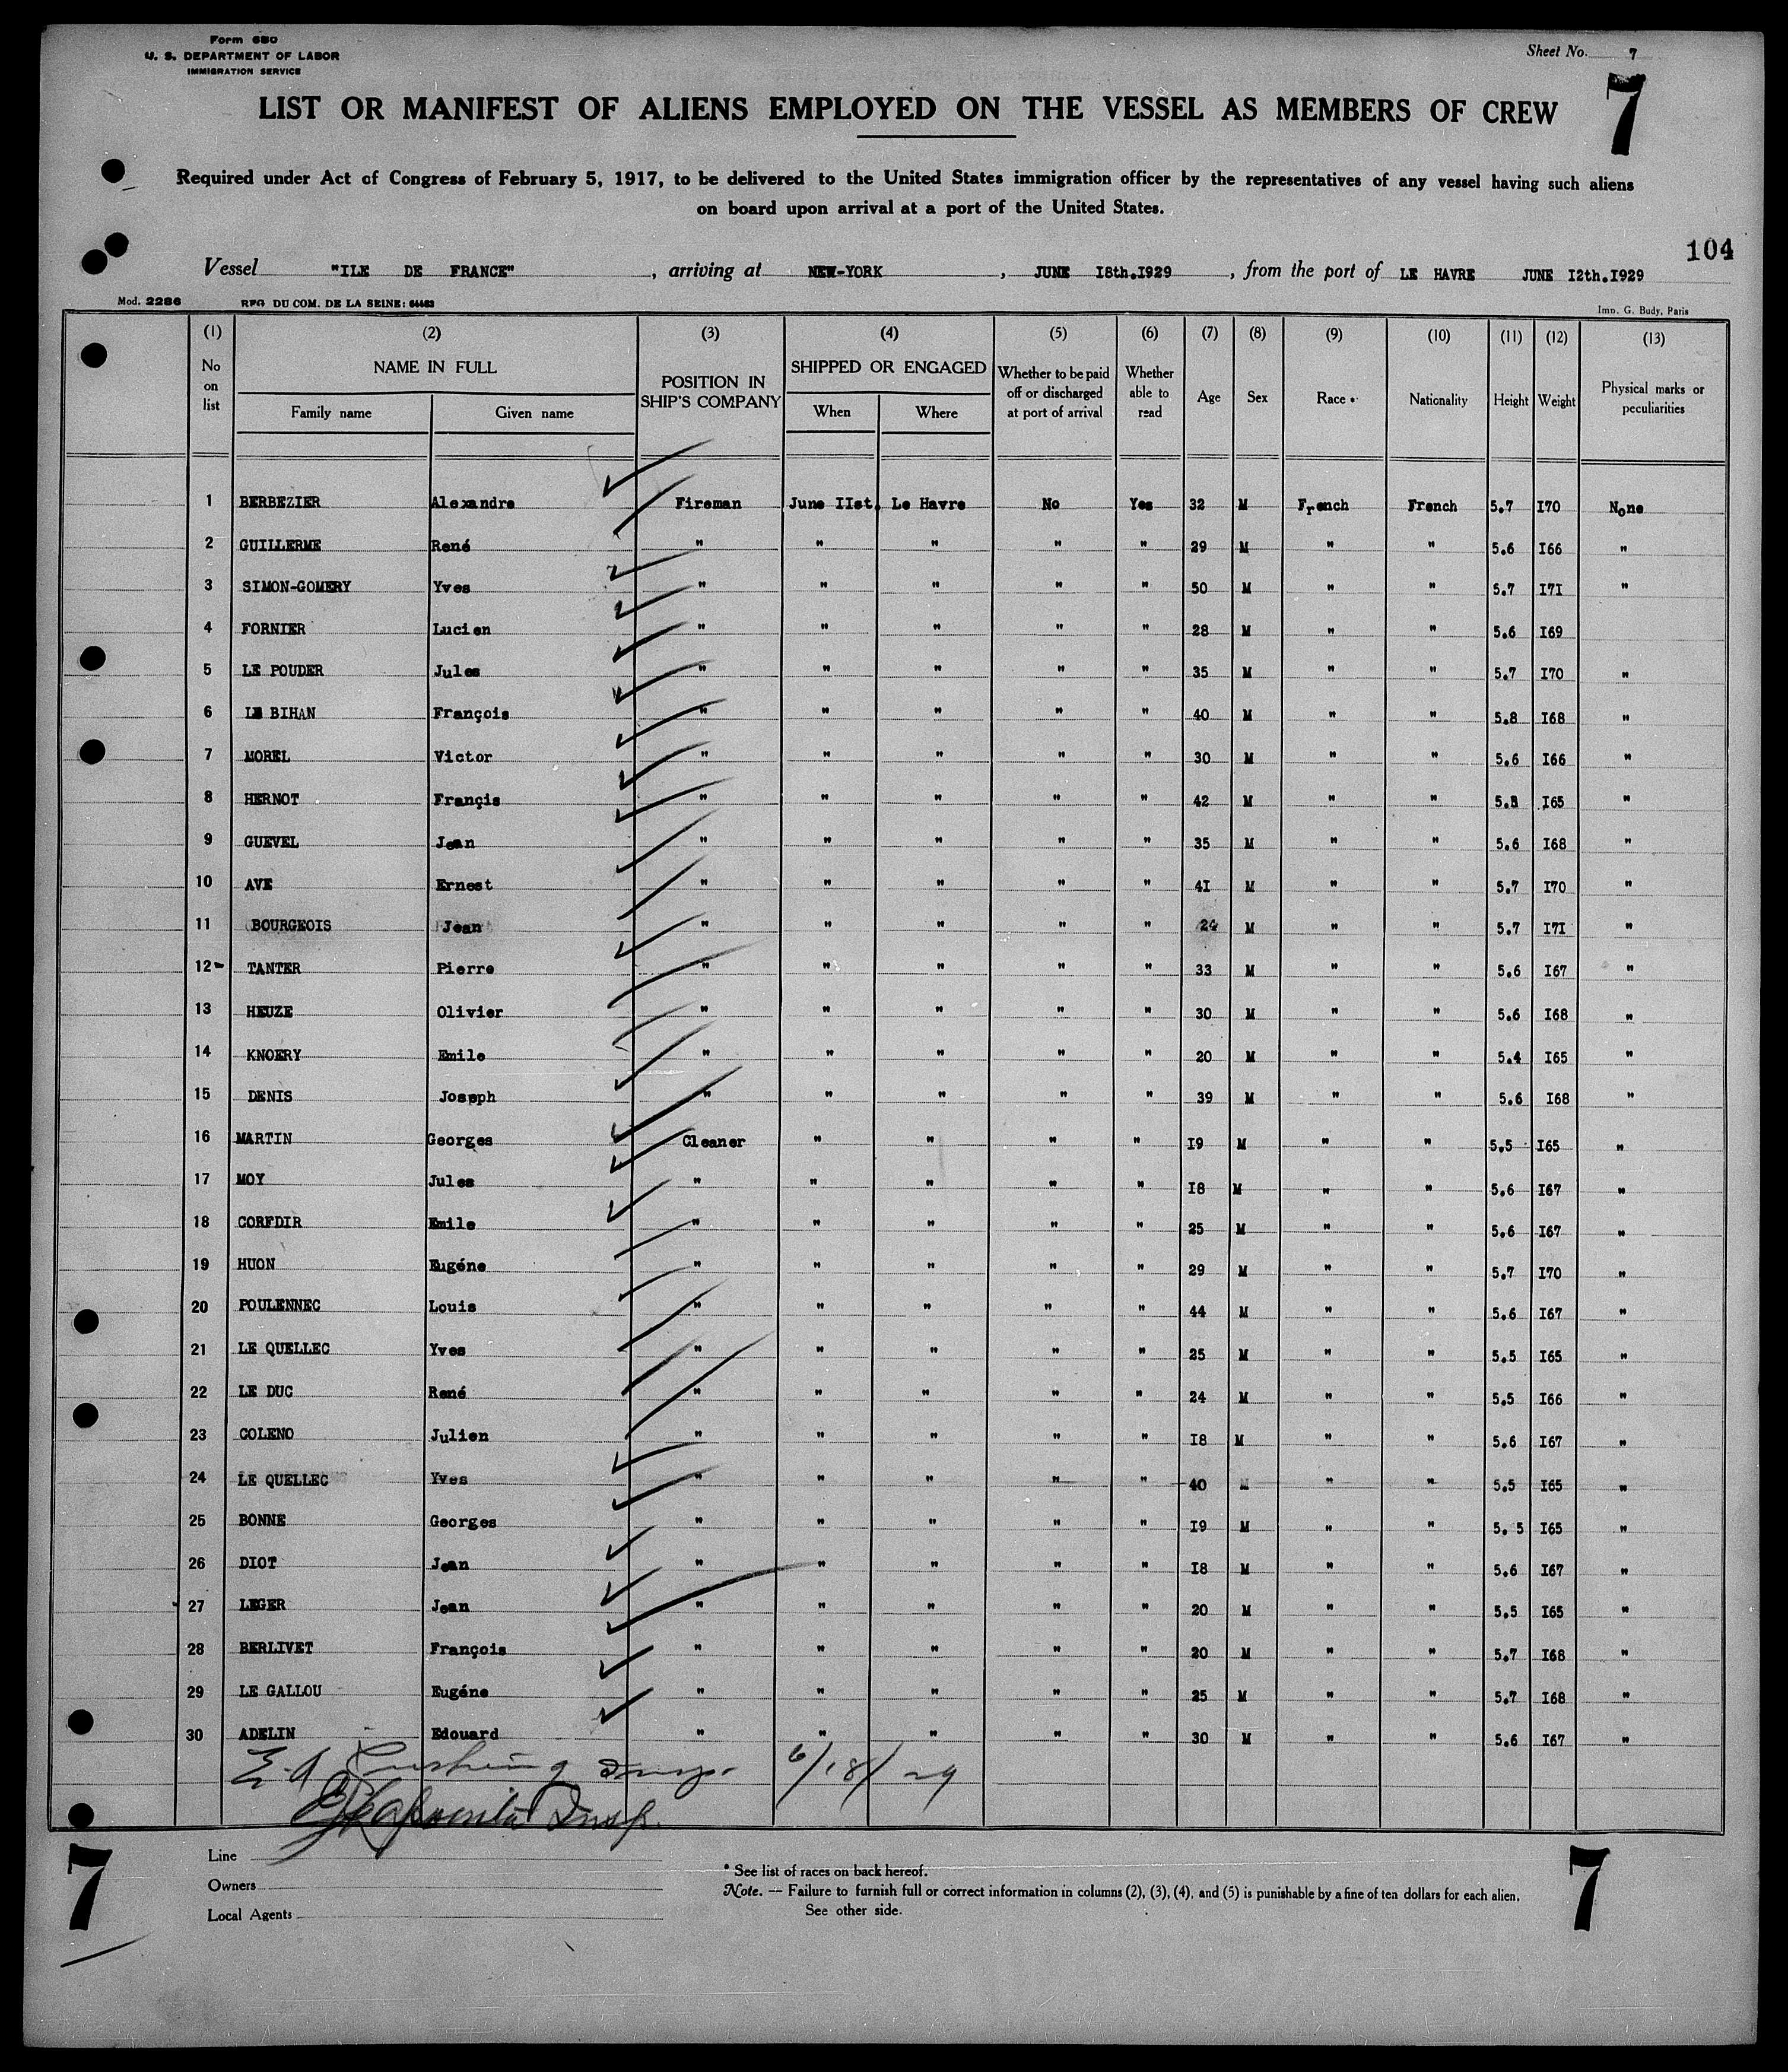 Form 680
U. S. DEPARTMENT OF LABOR
IMMIGRATION SERVICE
Sheet No. 7
7
LIST OR MANIFEST OF ALIENS EMPLOYED ON THE VESSEL AS MEMBERS OF CREW
Required under Act of Congress of February 5, 1917, to be delivered to the United States immigration officer by the representatives of any vessel having such aliens
on board upon arrival at a port of the United States.
104
Vessel "ILE DE FRANCE", arriving at NEW-YORK, JUNE I8th.I929, from the port of LE HAVRE JUNE I2th.I929
Mod. 2286 REG DU COM. DE LA SEINE: 64483 Imp. G. Budy, Paris
(1) (2) (3) (4) (5) (6) (7) (8) (9) (10) (11) (12) (13)
No on list NAME IN FULL Family name Given name POSITION IN SHIP'S COMPANY SHIPPED OR ENGAGED When Where Whether to be paid off or discharged at port of arrival Whether able to read Age Sex Race * Nationality Height Weight Physical marks or peculiarities
1 BERBEZIER Alexandre Fireman June IIst. Le Havre No Yes 32 M French French 5.7 I70 None
2 GUILLERME René " " " " " 29 M " " 5.6 I66 "
3 SIMON-GOMERY Yves " " " " " 50 M " " 5.7 I7I "
4 FORNIER Lucien " " " " " 28 M " " 5.6 I69
5 LE POUDER Jules " " " " " 35 M " " 5.7 I70 "
6 LE BIHAN François " " " " " 40 M " " 5.8 I68 "
7 MOREL Victor " " " " " 30 M " " 5.6 I66 "
8 HERNOT Françis " " " " " 42 M " " I65 "
9 GUEVEL Jean " " " " " 35 M " " 5.6 I68 "
10 AVE Ernest " " " " " 4I M " " 5.7 I70 "
11 BOURGEOIS Jean " " " " " 24 M " " 5.7 I7I "
12 TANTER Pierre " " " " " 33 M " " 5.6 I67 "
13 HEUZE Olivier " " " " " 30 M " " 5.6 I68 "
14 KNOERY Emile " " " " " 20 M " " 5.4 I65 "
15 DENIS Joseph " " " " " 39 M " " 5.6 I68 "
16 MARTIN Georges Cleaner " " " " I9 M " " 5.5 I65 "
17 MOY Jules " " " " " I8 M " " 5.6 I67 "
18 CORFDIR Emile " " " " " 25 M " " 5.6 I67 "
19 HUON Eugéne " " " " " 29 M " " 5.7 I70 "
20 POULENNEC Louis " " " " " 44 M " " 5.6 I67 "
21 LE QUELLEC Yves " " " " " 25 M " " 5.5 I65 "
22 LE DUC René " " " " " 24 M " " 5.5 I66 "
23 COLENO Julien " " " " " I8 M " " 5.6 I67 "
24 LE QUELLEC Yves " " " " " 40 M " " 5.5 I65 "
25 BONNE Georges " " " " " I9 M " " 5. 5 I65 "
26 DIOT Jean " " " " " I8 M " " 5.6 I67 "
27 LEGER Jean " " " " " 20 M " " 5.5 I65 "
28 BERLIVET François " " " " " 20 M " " 5.7 I68 "
29 LE GALLOU Eugéne " " " " " 25 M " " 5.7 I68 "
30 ADELIN Edouard " " " " " 30 M " " 5.6 I67 "
E. A. Cushing Insp. 6/18/29
Insp.
7 7
Line
Owners
Local Agents
* See list of races on back hereof.
Note. — Failure to furnish full or correct information in columns (2), (3), (4), and (5) is punishable by a fine of ten dollars for each alien.
See other side.